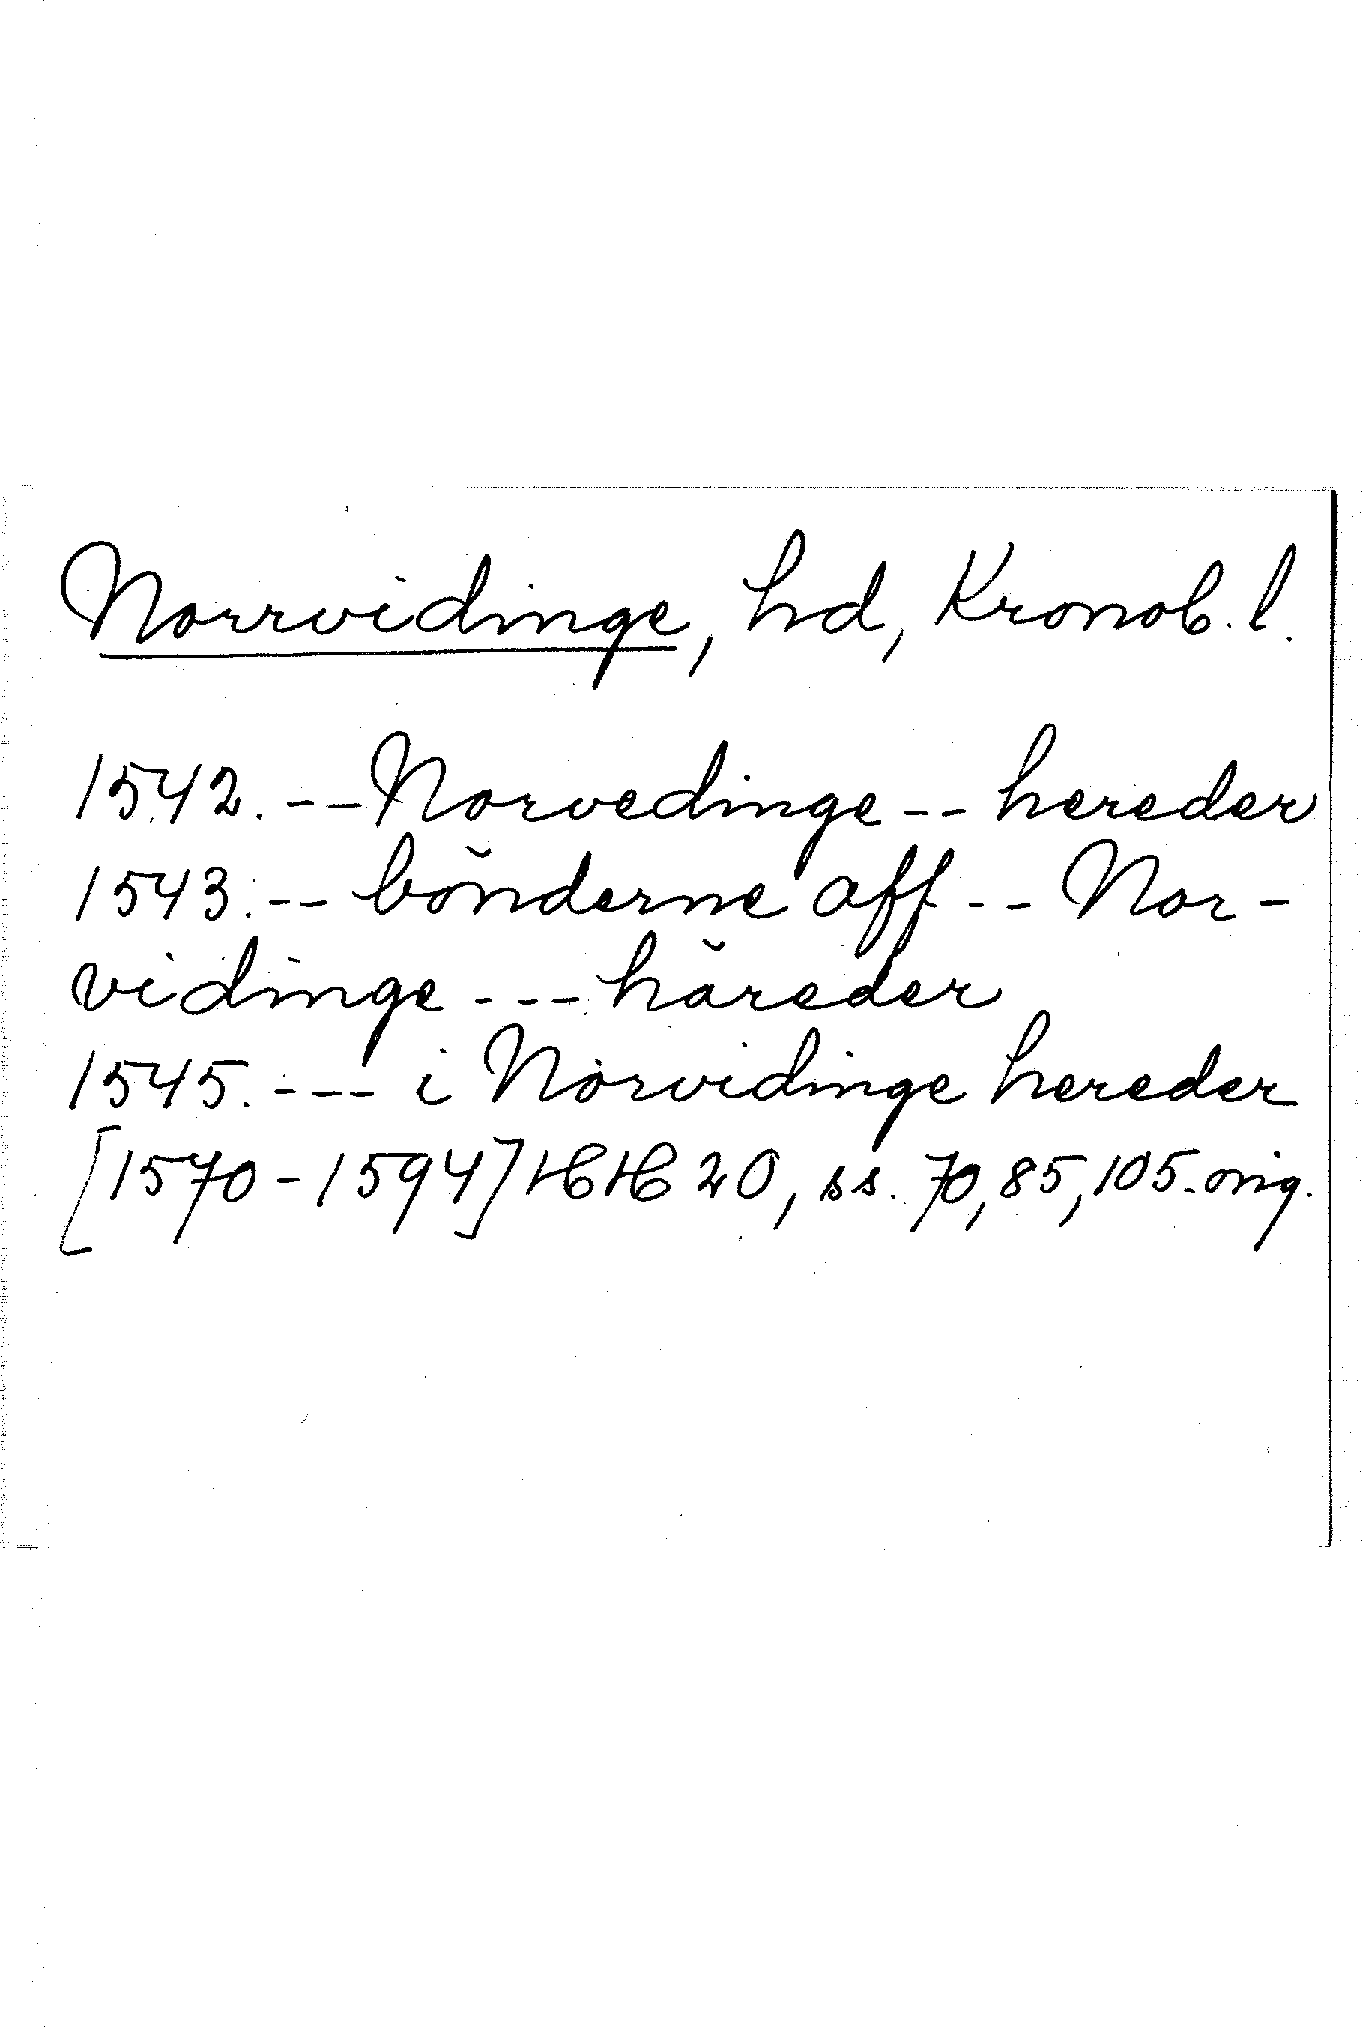 Norrvidinge, hd, Kronob. l.
1542. -- Norvedinge -- hereder
1543. -- bönderne aff -- Nor-
vidinge --- häreder
1545. --- i Norvidinge hereder
[1570-1594] HH 20, ss. 70, 85, 105. orig.